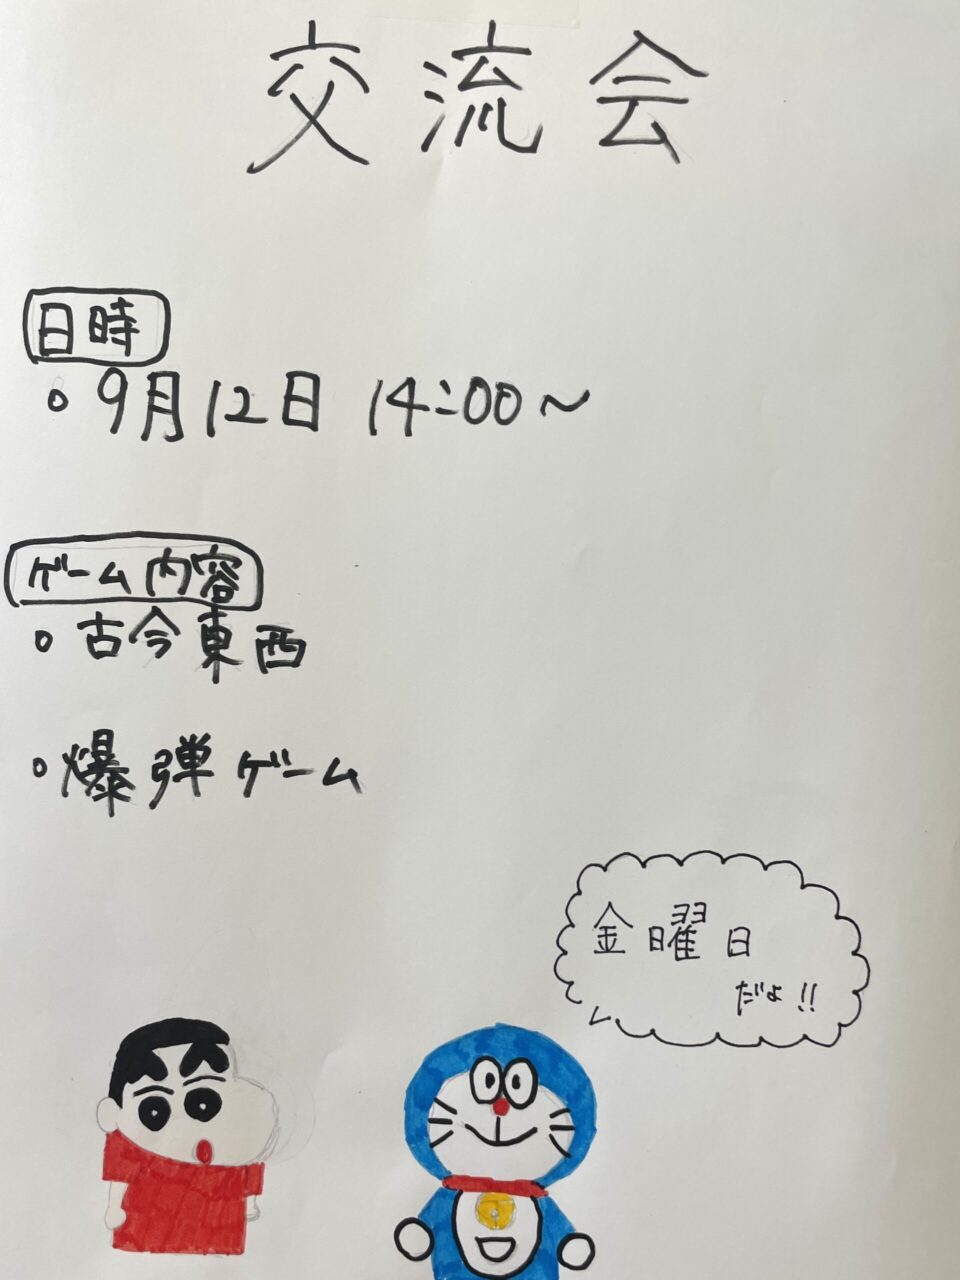 交流会
日時
• 9月12日 14:00~
ゲーム内容
• 古今東西
• 爆弾ゲーム
金曜日
だよ!!